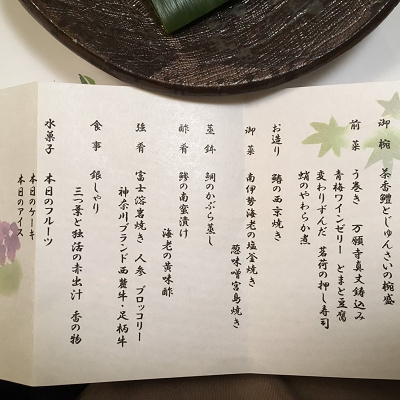 御椀　茶香鱧とじゅんさいの椀盛
前菜　う巻き　万願寺真丈鋳込み
青梅ワインゼリー　とまと豆腐
変わりずんだ　茗荷の押し寿司
蛸のやわらか煮
お造り　鰆の西京焼き
御菜　南伊勢海老の塩釜焼き
葱味噌宮島焼き
蒸鉢　鯛のかぶら蒸し
酢肴　鯵の南蜜漬け
海老の黄味酢
強肴　富士溶岩焼き　人参　ブロッコリー
神奈川ブランド西麓牛・足柄牛
食事　銀しゃり
三つ葉と独活の赤出汁　香の物
水菓子　本日のフルーツ
本日のケーキ
本日のアイス